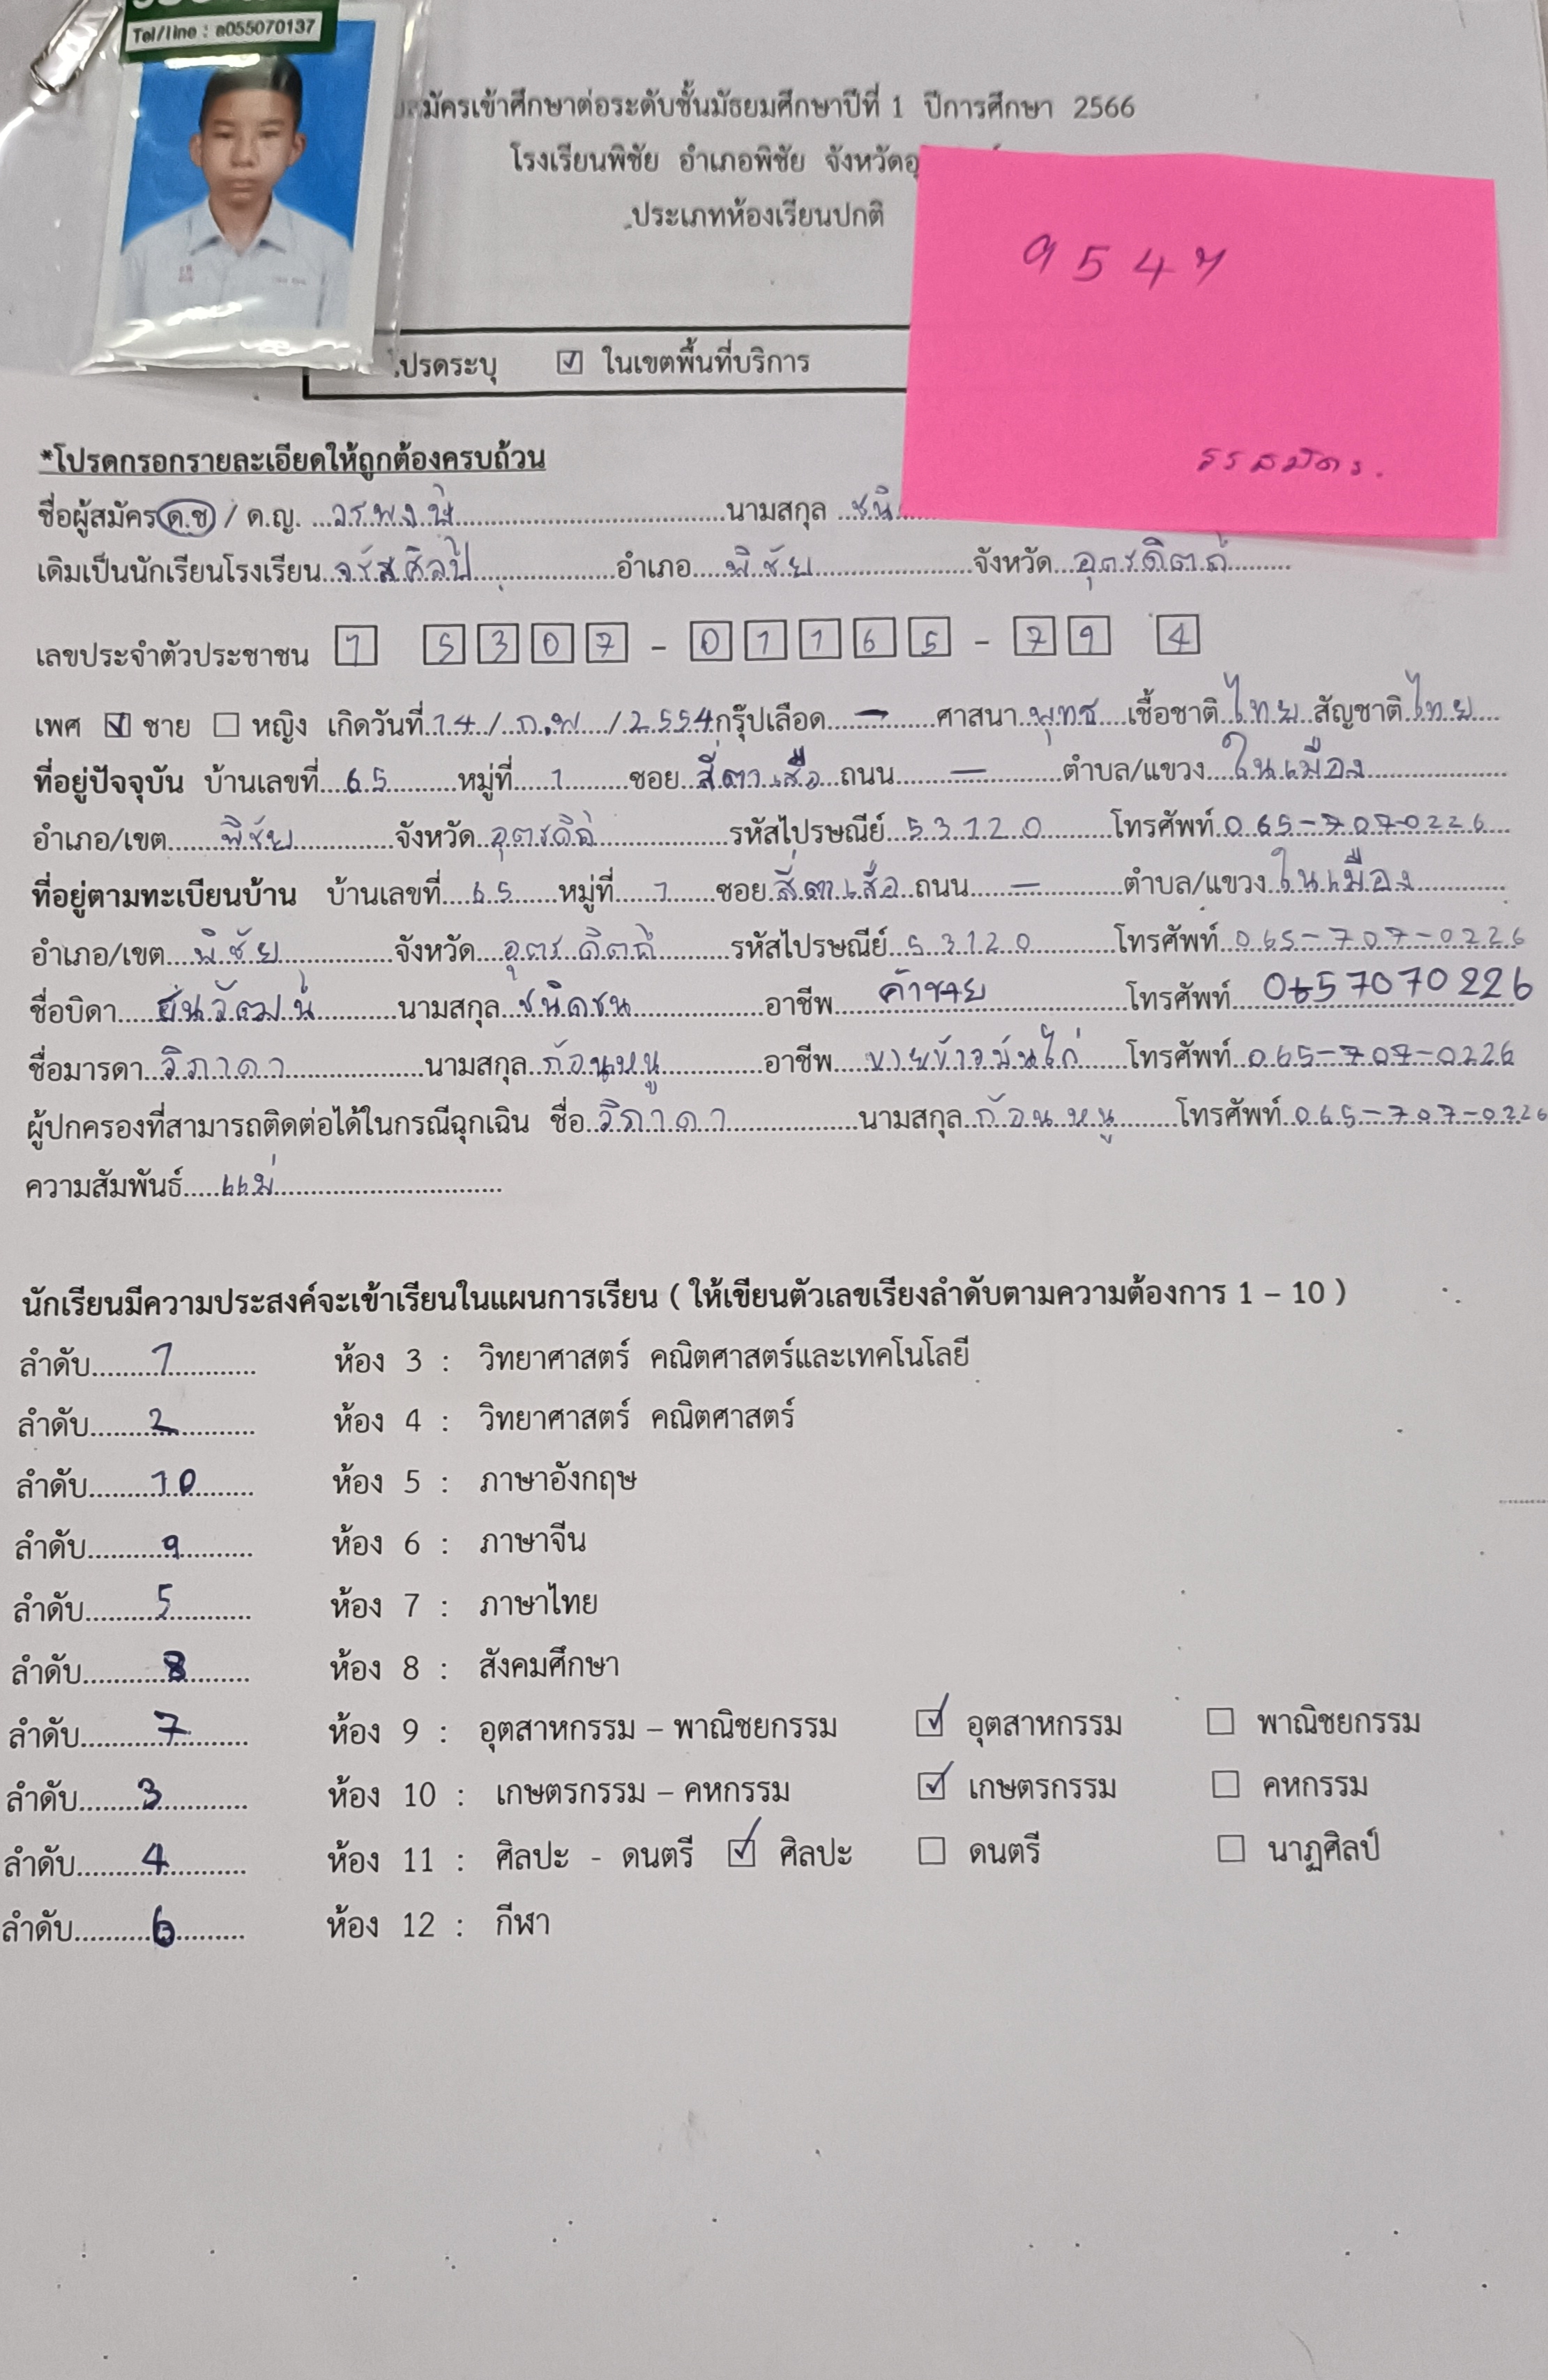 Tel/line : a055070137
สมัครเข้าศึกษาต่อระดับชั้นมัธยมศึกษาปีที่ 1 ปีการศึกษา 2566
โรงเรียนพิชัย อำเภอพิชัย
ประเภทห้องเรียนปกติ
9547
โปรดระบุ ☑ ในเขตพื้นที่บริการ
*โปรดกรอกรายละเอียดให้ถูกต้องครบถ้วน
ชื่อผู้สมัคร ด.ช / ด.ญ. วรพงษ์ นามสกุล
เดิมเป็นนักเรียนโรงเรียน จรัสศิลป์ อำเภอ พิชัย จังหวัด อุตรดิตถ์
เลขประจำตัวประชาชน 1 5307-01165-79 4
เพศ ☑ ชาย ☐ หญิง เกิดวันที่ 14 / ก.พ / 2554 กรุ๊ปเลือด - ศาสนา พุทธ เชื้อชาติ ไทย สัญชาติ ไทย
ที่อยู่ปัจจุบัน บ้านเลขที่ 65 หมู่ที่ 1 ซอย สี่ตาเสือ ถนน - ตำบล/แขวง ในเมือง
อำเภอ/เขต พิชัย จังหวัด รหัสไปรษณีย์ 53120 โทรศัพท์ 065-707-0226
ที่อยู่ตามทะเบียนบ้าน บ้านเลขที่ 65 หมู่ที่ 1 ซอย สี่ตาเสือ ถนน - ตำบล/แขวง ในเมือง
อำเภอ/เขต พิชัย จังหวัด อุตรดิตถ์ รหัสไปรษณีย์ 53120 โทรศัพท์ 065-707-0226
ชื่อบิดา นามสกุล ชนิดชน อาชีพ ค้าขาย โทรศัพท์ 0657070226
ชื่อมารดา วิภาดา นามสกุล ก้อนหนู อาชีพ ขายข้าวมันไก่ โทรศัพท์ 065-707-0226
ผู้ปกครองที่สามารถติดต่อได้ในกรณีฉุกเฉิน ชื่อ วิภาดา นามสกุล ก้อนหนู โทรศัพท์ 065-707-0226
ความสัมพันธ์ แม่
นักเรียนมีความประสงค์จะเข้าเรียนในแผนการเรียน ( ให้เขียนตัวเลขเรียงลำดับตามความต้องการ 1 – 10 )
ลำดับ 1 ห้อง 3 : วิทยาศาสตร์ คณิตศาสตร์และเทคโนโลยี
ลำดับ 2 ห้อง 4 : วิทยาศาสตร์ คณิตศาสตร์
ลำดับ 10 ห้อง 5 : ภาษาอังกฤษ
ลำดับ 9 ห้อง 6 : ภาษาจีน
ลำดับ 5 ห้อง 7 : ภาษาไทย
ลำดับ 8 ห้อง 8 : สังคมศึกษา
ลำดับ 7 ห้อง 9 : อุตสาหกรรม – พาณิชยกรรม ☑ อุตสาหกรรม ☐ พาณิชยกรรม
ลำดับ 3 ห้อง 10 : เกษตรกรรม – คหกรรม ☑ เกษตรกรรม ☐ คหกรรม
ลำดับ 4 ห้อง 11 : ศิลปะ - ดนตรี ☑ ศิลปะ ☐ ดนตรี ☐ นาฏศิลป์
ลำดับ 6 ห้อง 12 : กีฬา